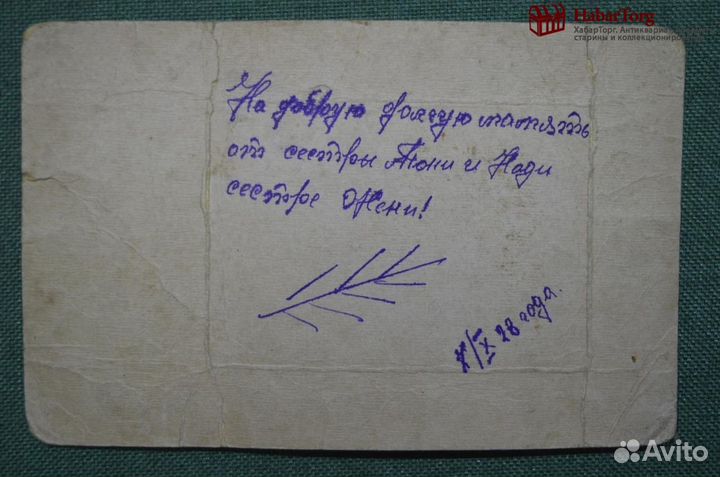 HabarTorg
ХабарТорг. Антиквариат,
старины и коллекциониро
На добрую долгую память
от сестры Тони и Нади
сестре Жени!
X 28 года.
Avito